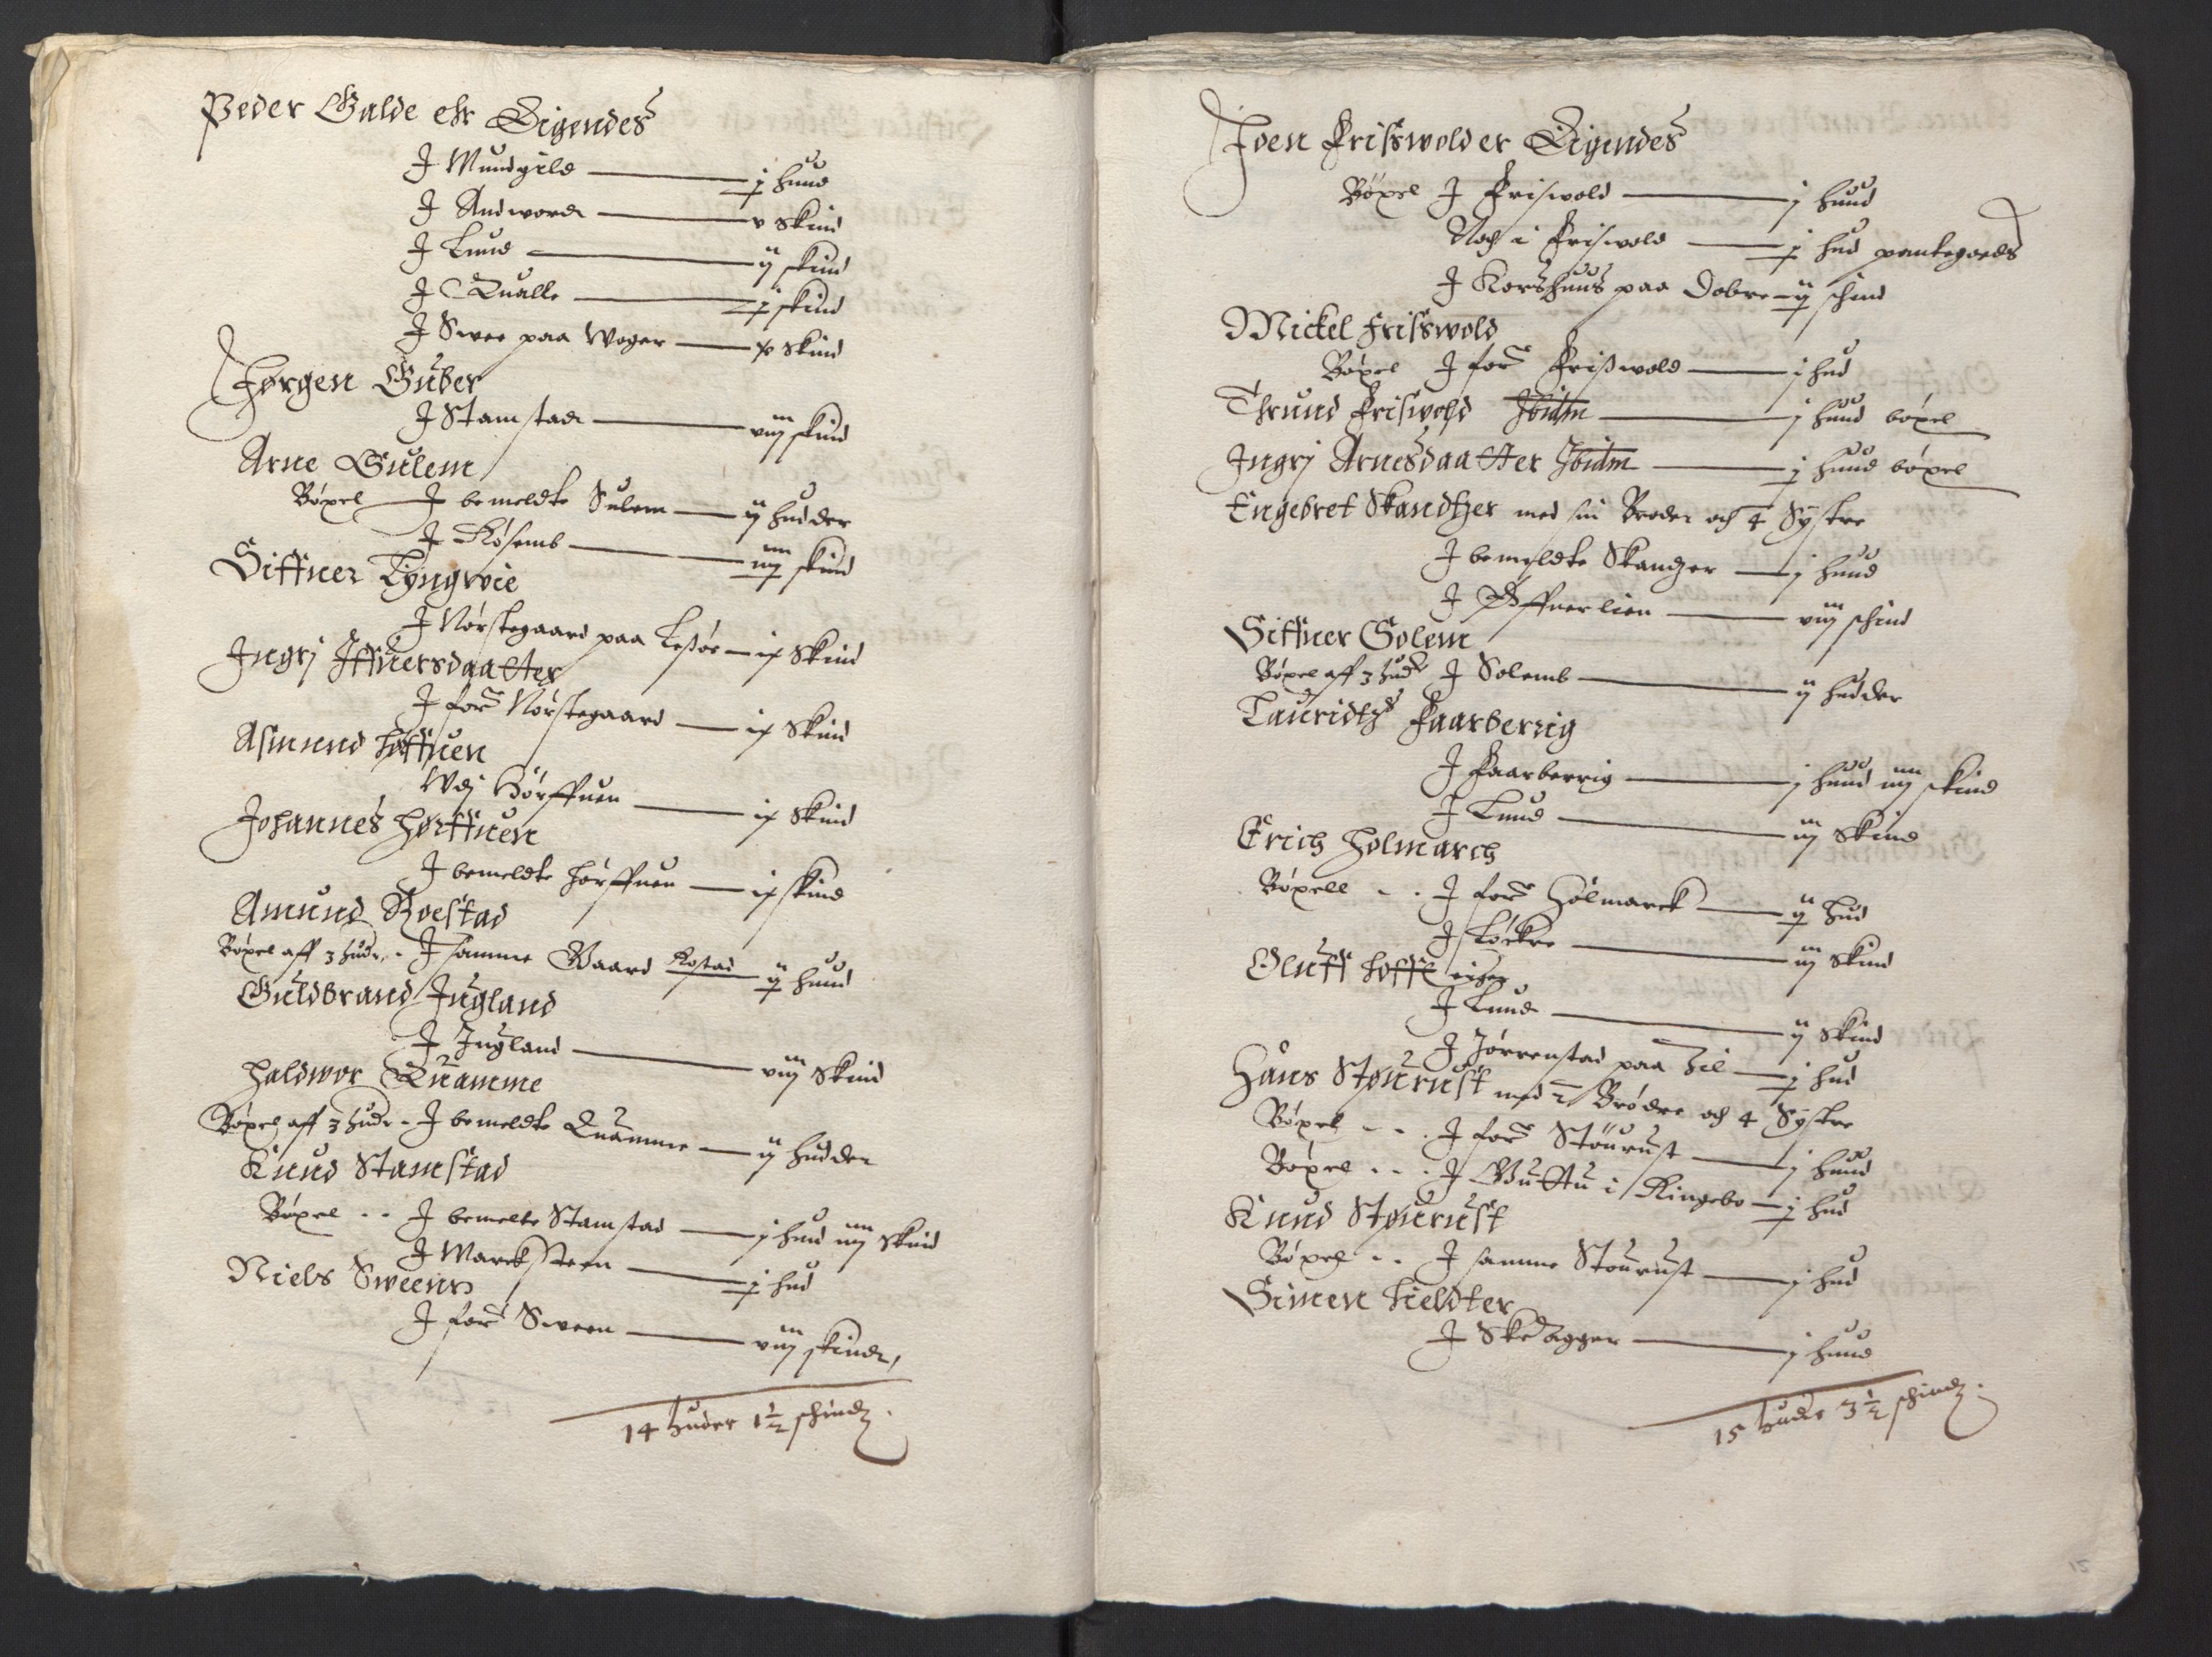 Peder Galde ehr Eigendes
J Mundgild j huud
J Andword v skind
J Lund ij skind
J Qualle j skind
J Swee paa Woger x skind
Jørgen Guber
J Stamstad viij skind
Arne Sulem
Bøxel J bemeldte Sulem ij hudder
J Røsemb iiij skind
Siffuer Tyngwie
J Nørstegaard paa Lessøe ix skind
Ingrj Iffuersdaatter
J for: Nørstegaard ix skind
Asmund høffuen
Wdj Hørffuen ix skind
Johannes hørffuen
J bemeldte hørffuen ix skind
Amund Roestad
Bøxel aff 3 hud: J samme Gaard Rostad ij huud
Guldbrand Jngland
J Jngland viij skind
Haldwor Quamme
Bøxel aff 3 hud: J bemeldte Quamme ij hudder
Knud Stamstad
Bøxel J bemelte Stamstad j hud iiij skind
J Marcksteen j hud
Niels Sweenn
J for: Sween viij skind,
14 huder 1½ schind.
Joen Frisswold er Eigendes
Bøxel J Friswold j huud
Noch i Friswold j hud pantegoeds
J Korshuus paa Dobre ij schind
Mickel Frisswold
Bøxel J for: Frisswold j hud
Thrund Friswold Ibidm j huud bøxel
Ingrj Arnesdaatter Ibidm j huud bøxel
Engebret Skandtzer med sin Broder och 4 Systre
J bemeldte Skandzer j huud
J Øffuerlien viij schind
Siffuer Solem
Bøxel aff 3 hud: J Solemb ij hudder
Lauridtz Faarberrig
J Faarberrig j huud iiij skind
J Lund iij skind
Erich Holmarch
Bøxell J for: Hølmarck ij hud
J Løckre iij skind
Oluff Hoffl eiger
J Lund ij skind
J Jørrenstad paa Fil j hud
Hans Støurust med 2 Brødre och 4 Systre
Bøxel J for: Støurust j huud
Bøxel J Guttu i Ringebo j hud
Knud Støurust
Bøxel J samme Støurust j hud
Simen Kieldter
J Skedagger j huud
15 hude 3½ schind.
15